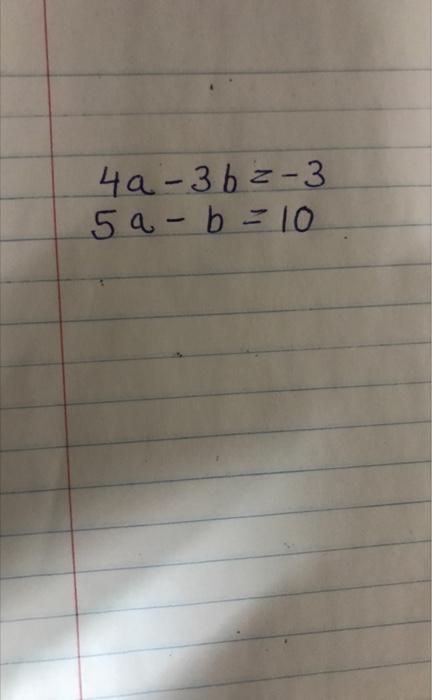 4a - 3b = -3
5a - b = 10